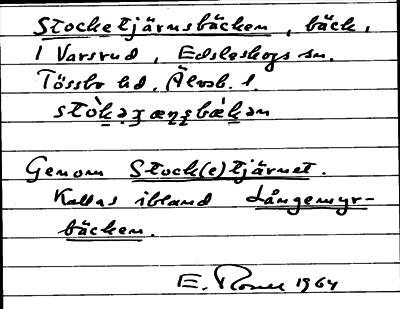 Stocketjärnsbäcken, bäck,
i Varsrud, Edsleskogs sn.
Tössbo hd, Älvsb. l.
Genom Stock(e)tjärnet.
Kallas ibland Långemyr-
bäcken.
E. 1964